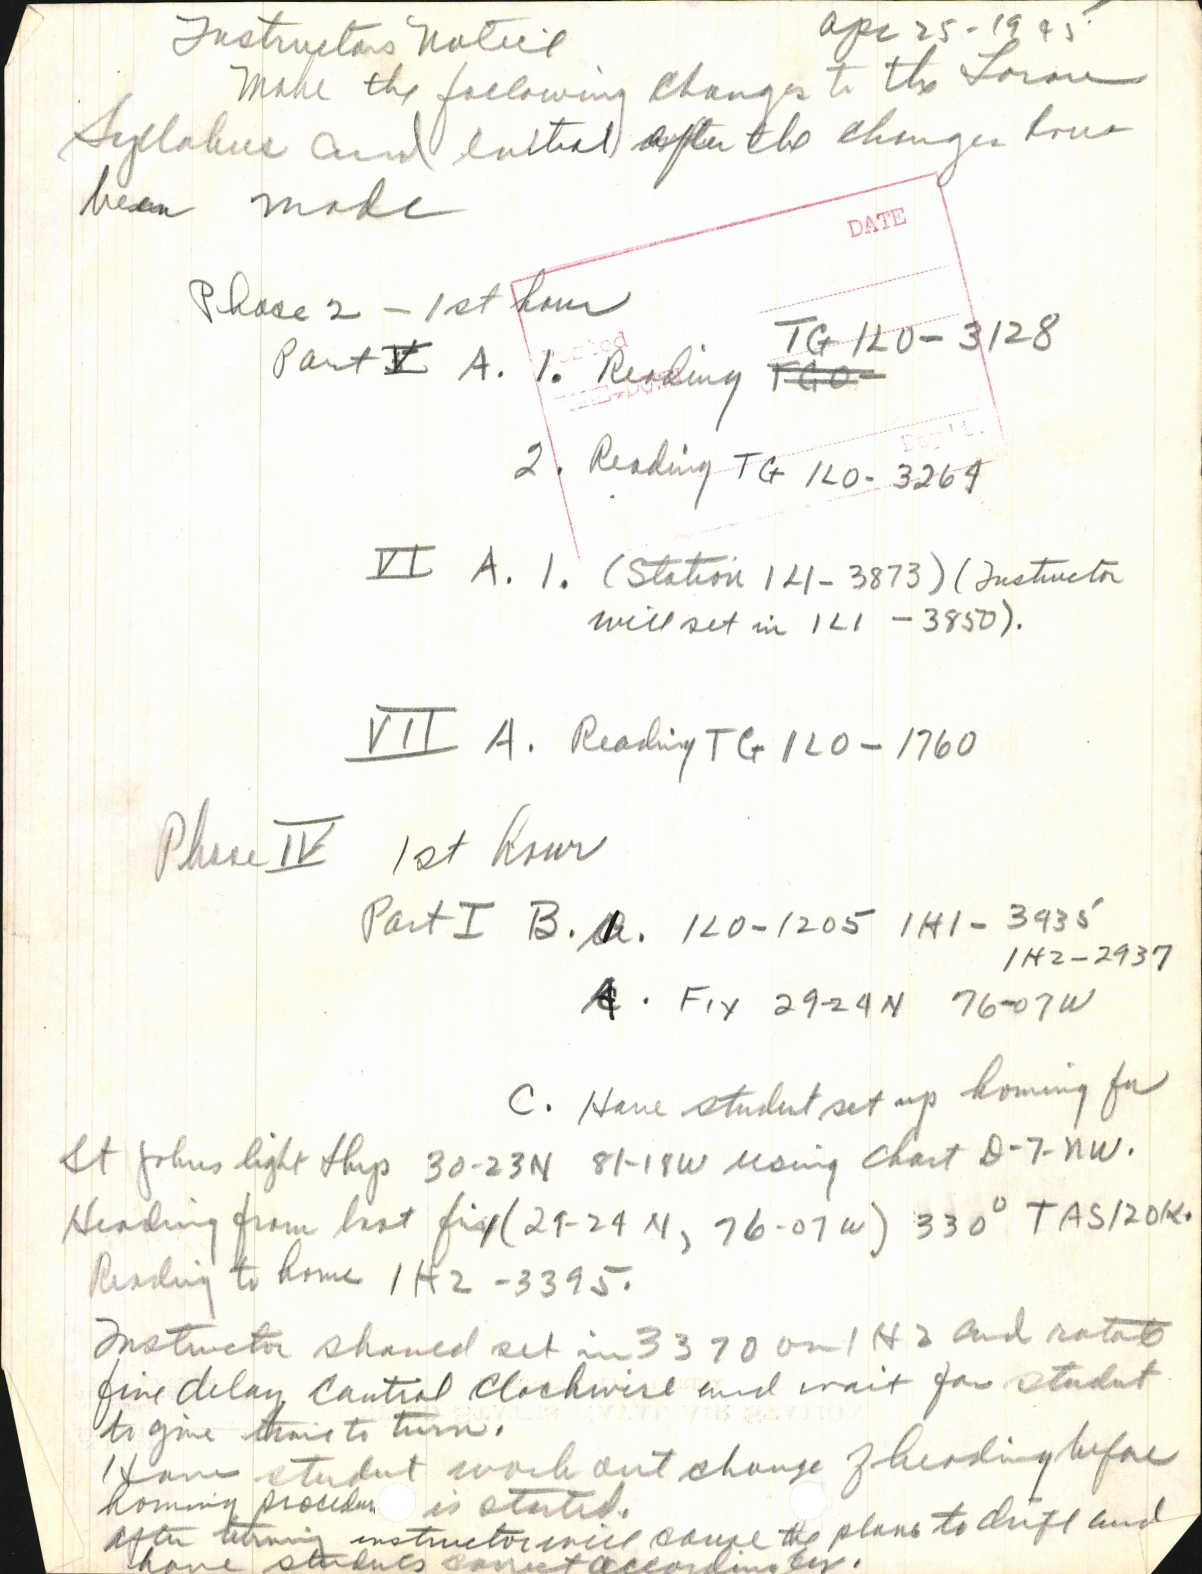 Instructors Notice Apr 25-1945
Make the following changes to the Loran
Syllabus and initial after the changes have
been made
DATE
Phase 2 - 1st hour
TG 1L0-3128
Part V A. 1. Reading TG0-
Dep't.
2. Reading TG 1L0-3264
VI A. 1. (Station 1L1-3873) (Instructor
will set in 1L1 -3850).
VII A. Reading TG 1L0-1760
Phase IV 1st hour
Part I B. 1. 1L0-1205 1H1-3935
1H2-2937
4. Fix 29-24N 76-07W
C. Have student set up homing for
St Johns light Ship 30-23N 81-18W using chart D-7-NW.
Heading from last fix (29-24 N, 76-07W) 330° TAS 120K.
Reading to home 1H2-3395.
Instructor should set in 3370 on 1H2 and rotate
fine delay control clockwise and wait for student
to give time to turn.
Have student work out change of heading before
homing procedure is started.
After turning instructor will cause the plane to drift and
have students correct accordingly.